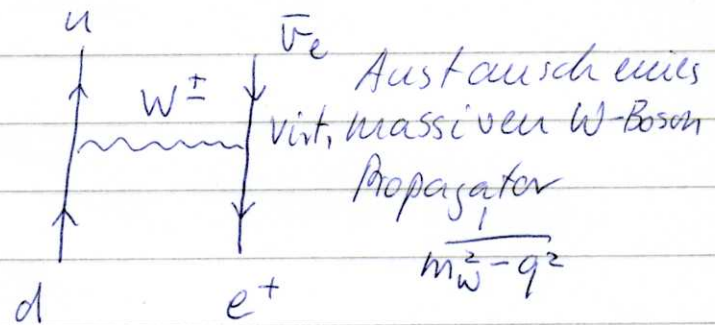 u
ν̄e
W±
Austausch eines
virt. massiven W-Boson
Propagator
1/(m_W² - q²)
d
e⁺